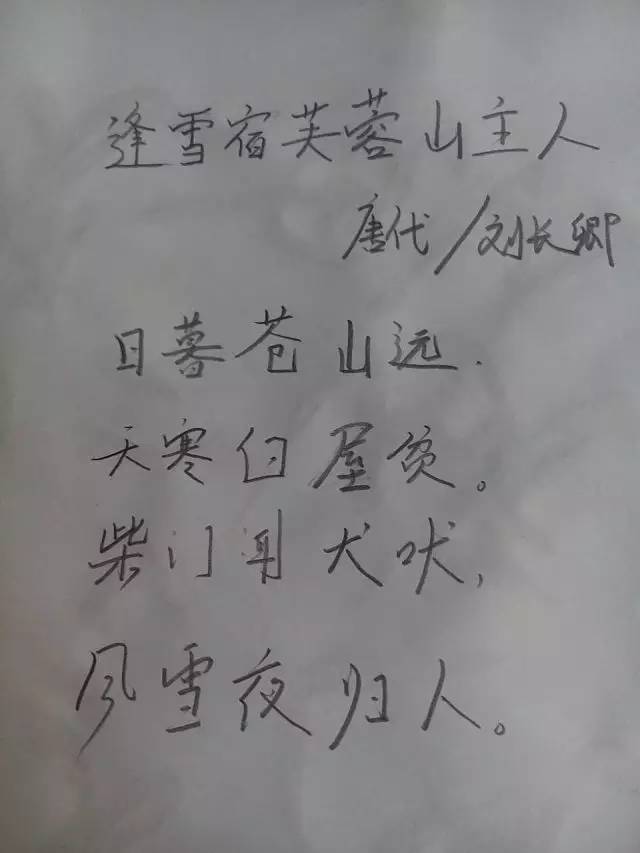 逢雪宿芙蓉山主人
唐代/刘长卿
日暮苍山远.
天寒白屋贫。
柴门闻犬吠,
风雪夜归人。